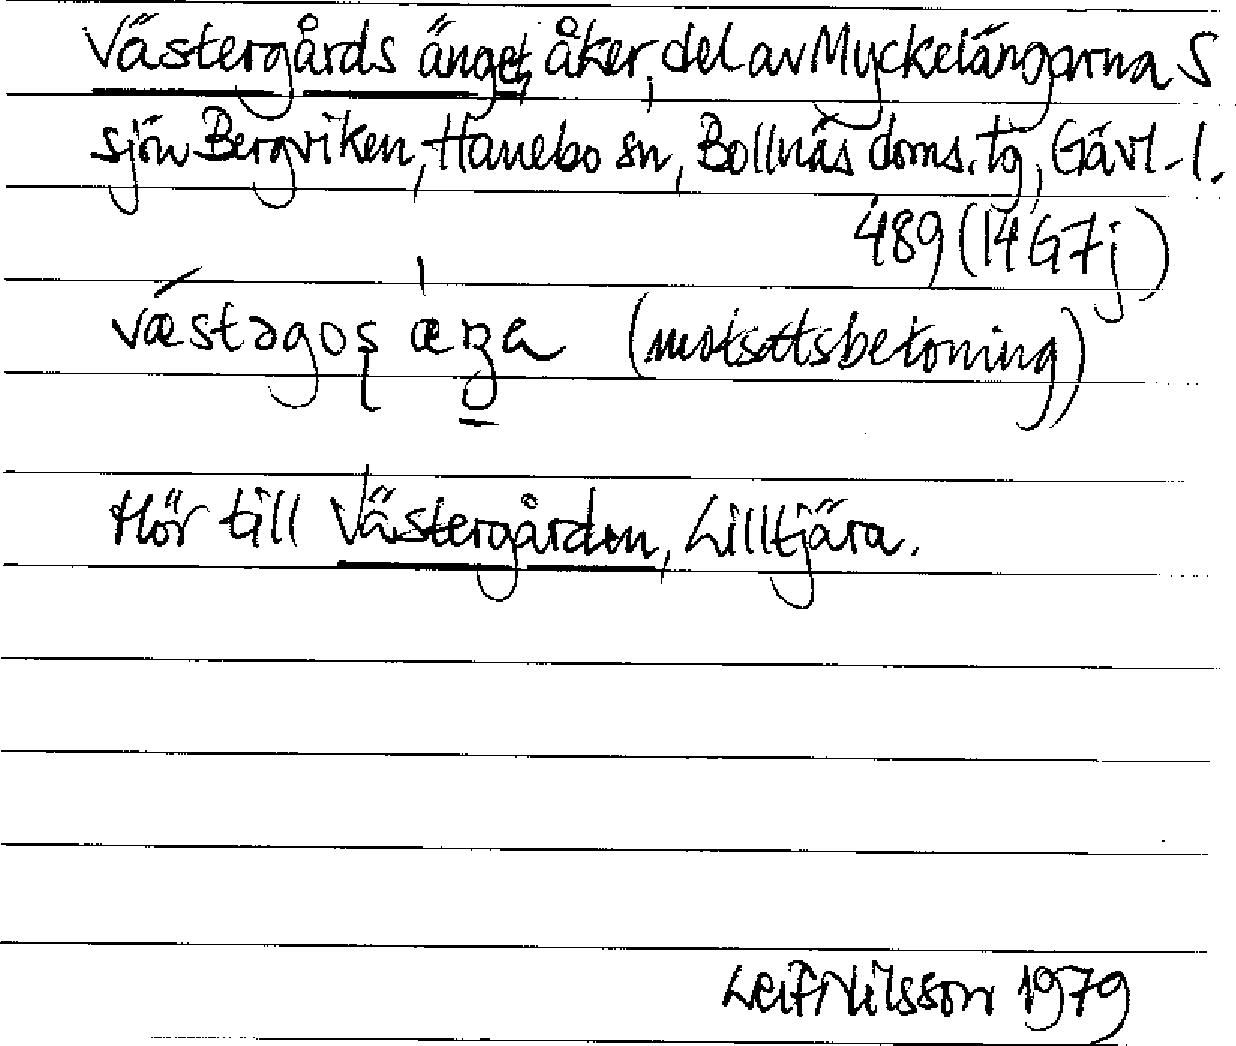 Västergårds änget, åker, del av Myckelängarna S
sjön Bergviken, Hanebo sn, Bollnäs doms. tg, Gävl-l.
489 (14G7j)
væstəgoʂ æŋa (motsatsbetoning)
Hör till Västergården, Lilltjära.
Leif Nilsson 1979